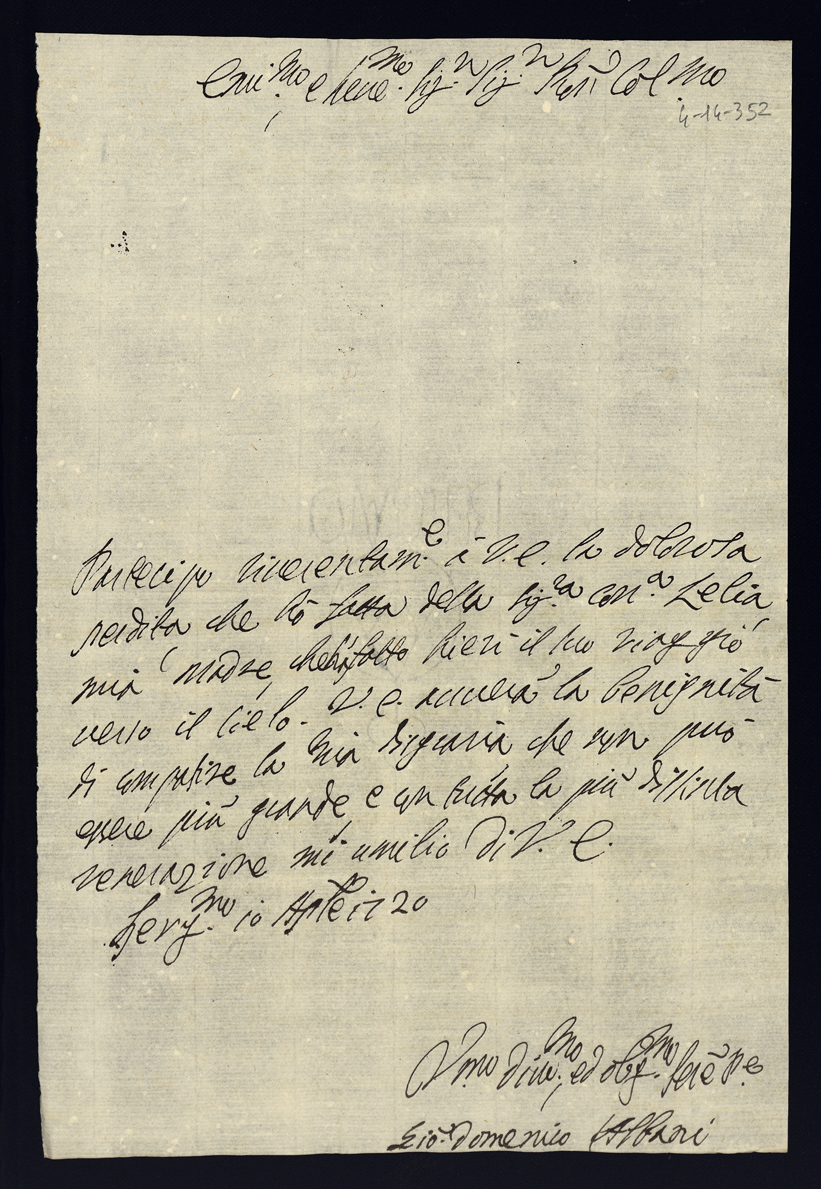 Emi.mo e Reve.mo Sig.r Sig.r Pron Col.mo
4-14-352
Partecipo riverentam.e à V.E. la dolorosa
perdita che hò fatta della Sig.ra Con.a Lelia
mia Madre, che hà fatto hieri il suo viaggio
verso il Cielo. V.E. averà la benignità
di compatire la mia disgrazia che non può
essere più grande, e con tutta la più distinta
venerazione mi umilio Di V.E.
Berg.mo 10 Aple 1720
Vmo Divo.mo, ed obg.mo Serê Pe
Gio: Domenico Albani